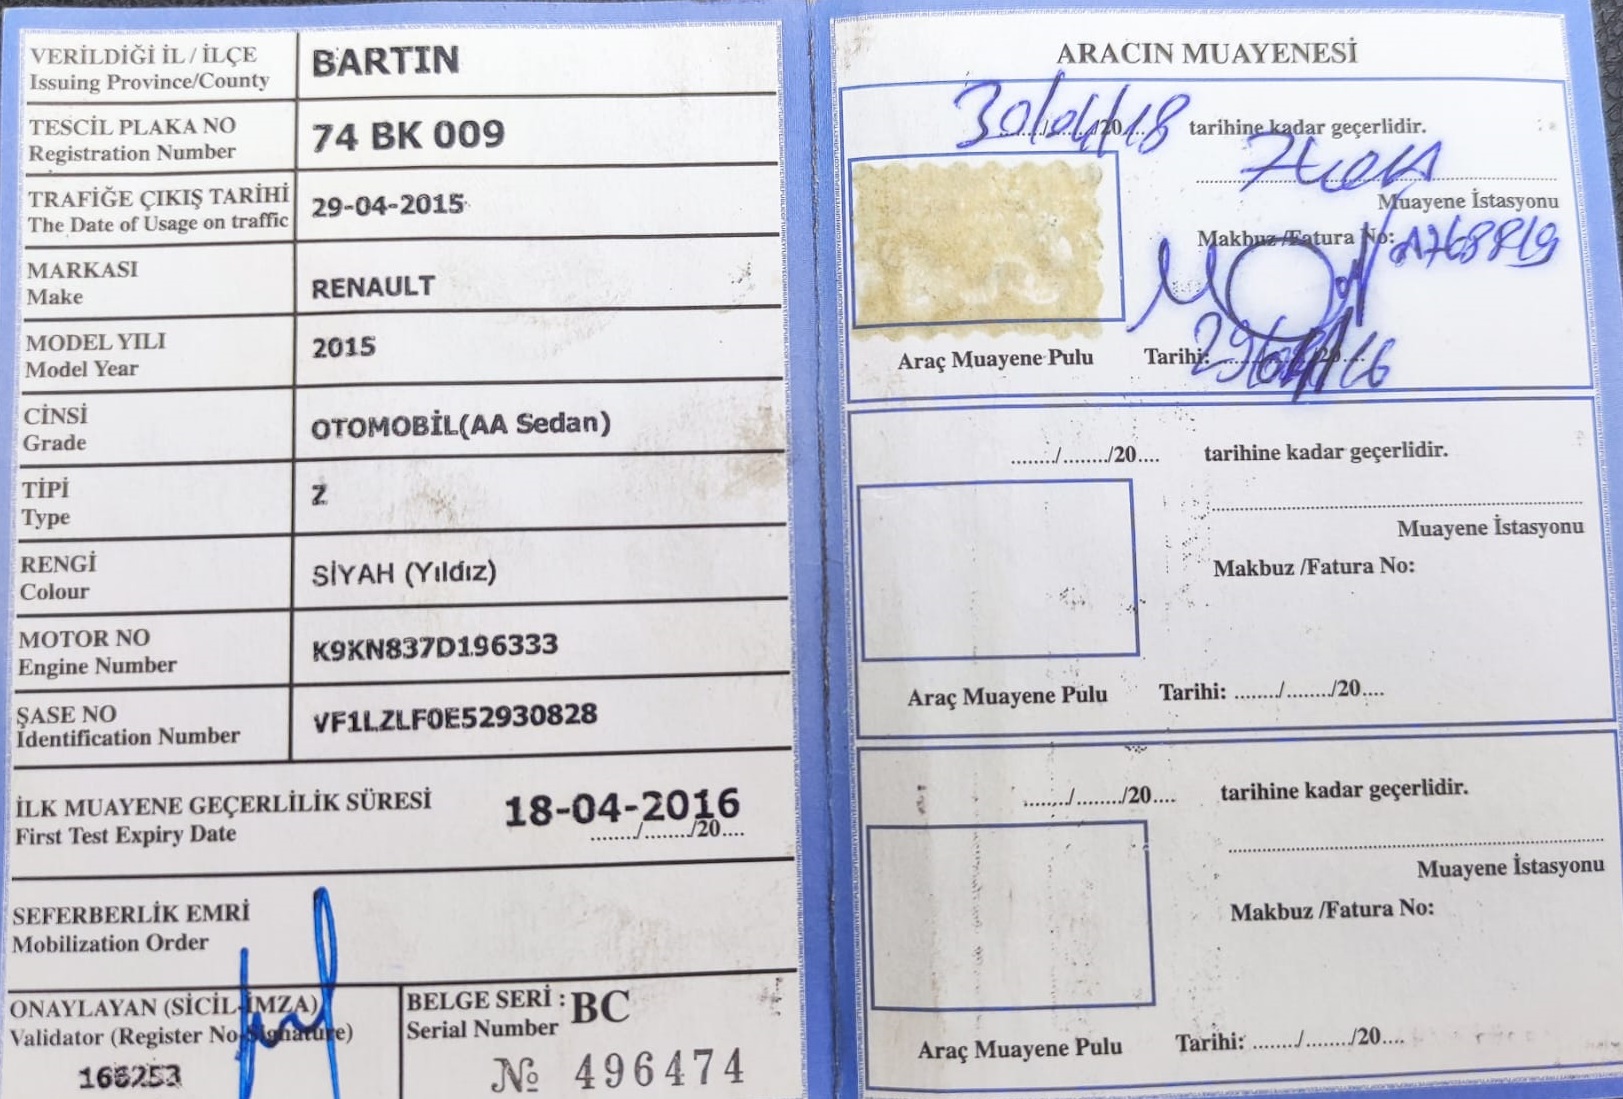 VERİLDİĞİ İL / İLÇE
Issuing Province/County
BARTIN
TESCİL PLAKA NO
Registration Number
74 BK 009
TRAFİĞE ÇIKIŞ TARİHİ
The Date of Usage on traffic
29-04-2015
MARKASI
Make
RENAULT
MODEL YILI
Model Year
2015
CİNSİ
Grade
OTOMOBİL(AA Sedan)
TİPİ
Type
Z
RENGİ
Colour
SİYAH (Yıldız)
MOTOR NO
Engine Number
K9KN837D196333
ŞASE NO
Identification Number
VF1LZLF0E52930828
İLK MUAYENE GEÇERLİLİK SÜRESİ
First Test Expiry Date
18-04-2016
......../......../20....
SEFERBERLİK EMRİ
Mobilization Order
ONAYLAYAN (SİCİL-İMZA)
Validator (Register No-Signature)
BELGE SERİ : BC
Serial Number
№ 496474
ARACIN MUAYENESİ
30/04/18 tarihine kadar geçerlidir.
Muayene İstasyonu
Makbuz /Fatura No: A768819
Araç Muayene Pulu
Tarihi: 29/04/16
......../......../20.... tarihine kadar geçerlidir.
Muayene İstasyonu
Makbuz /Fatura No:
Araç Muayene Pulu
Tarihi: ......../......../20....
......../......../20.... tarihine kadar geçerlidir.
Muayene İstasyonu
Makbuz /Fatura No:
Araç Muayene Pulu
Tarihi: ......../......../20....